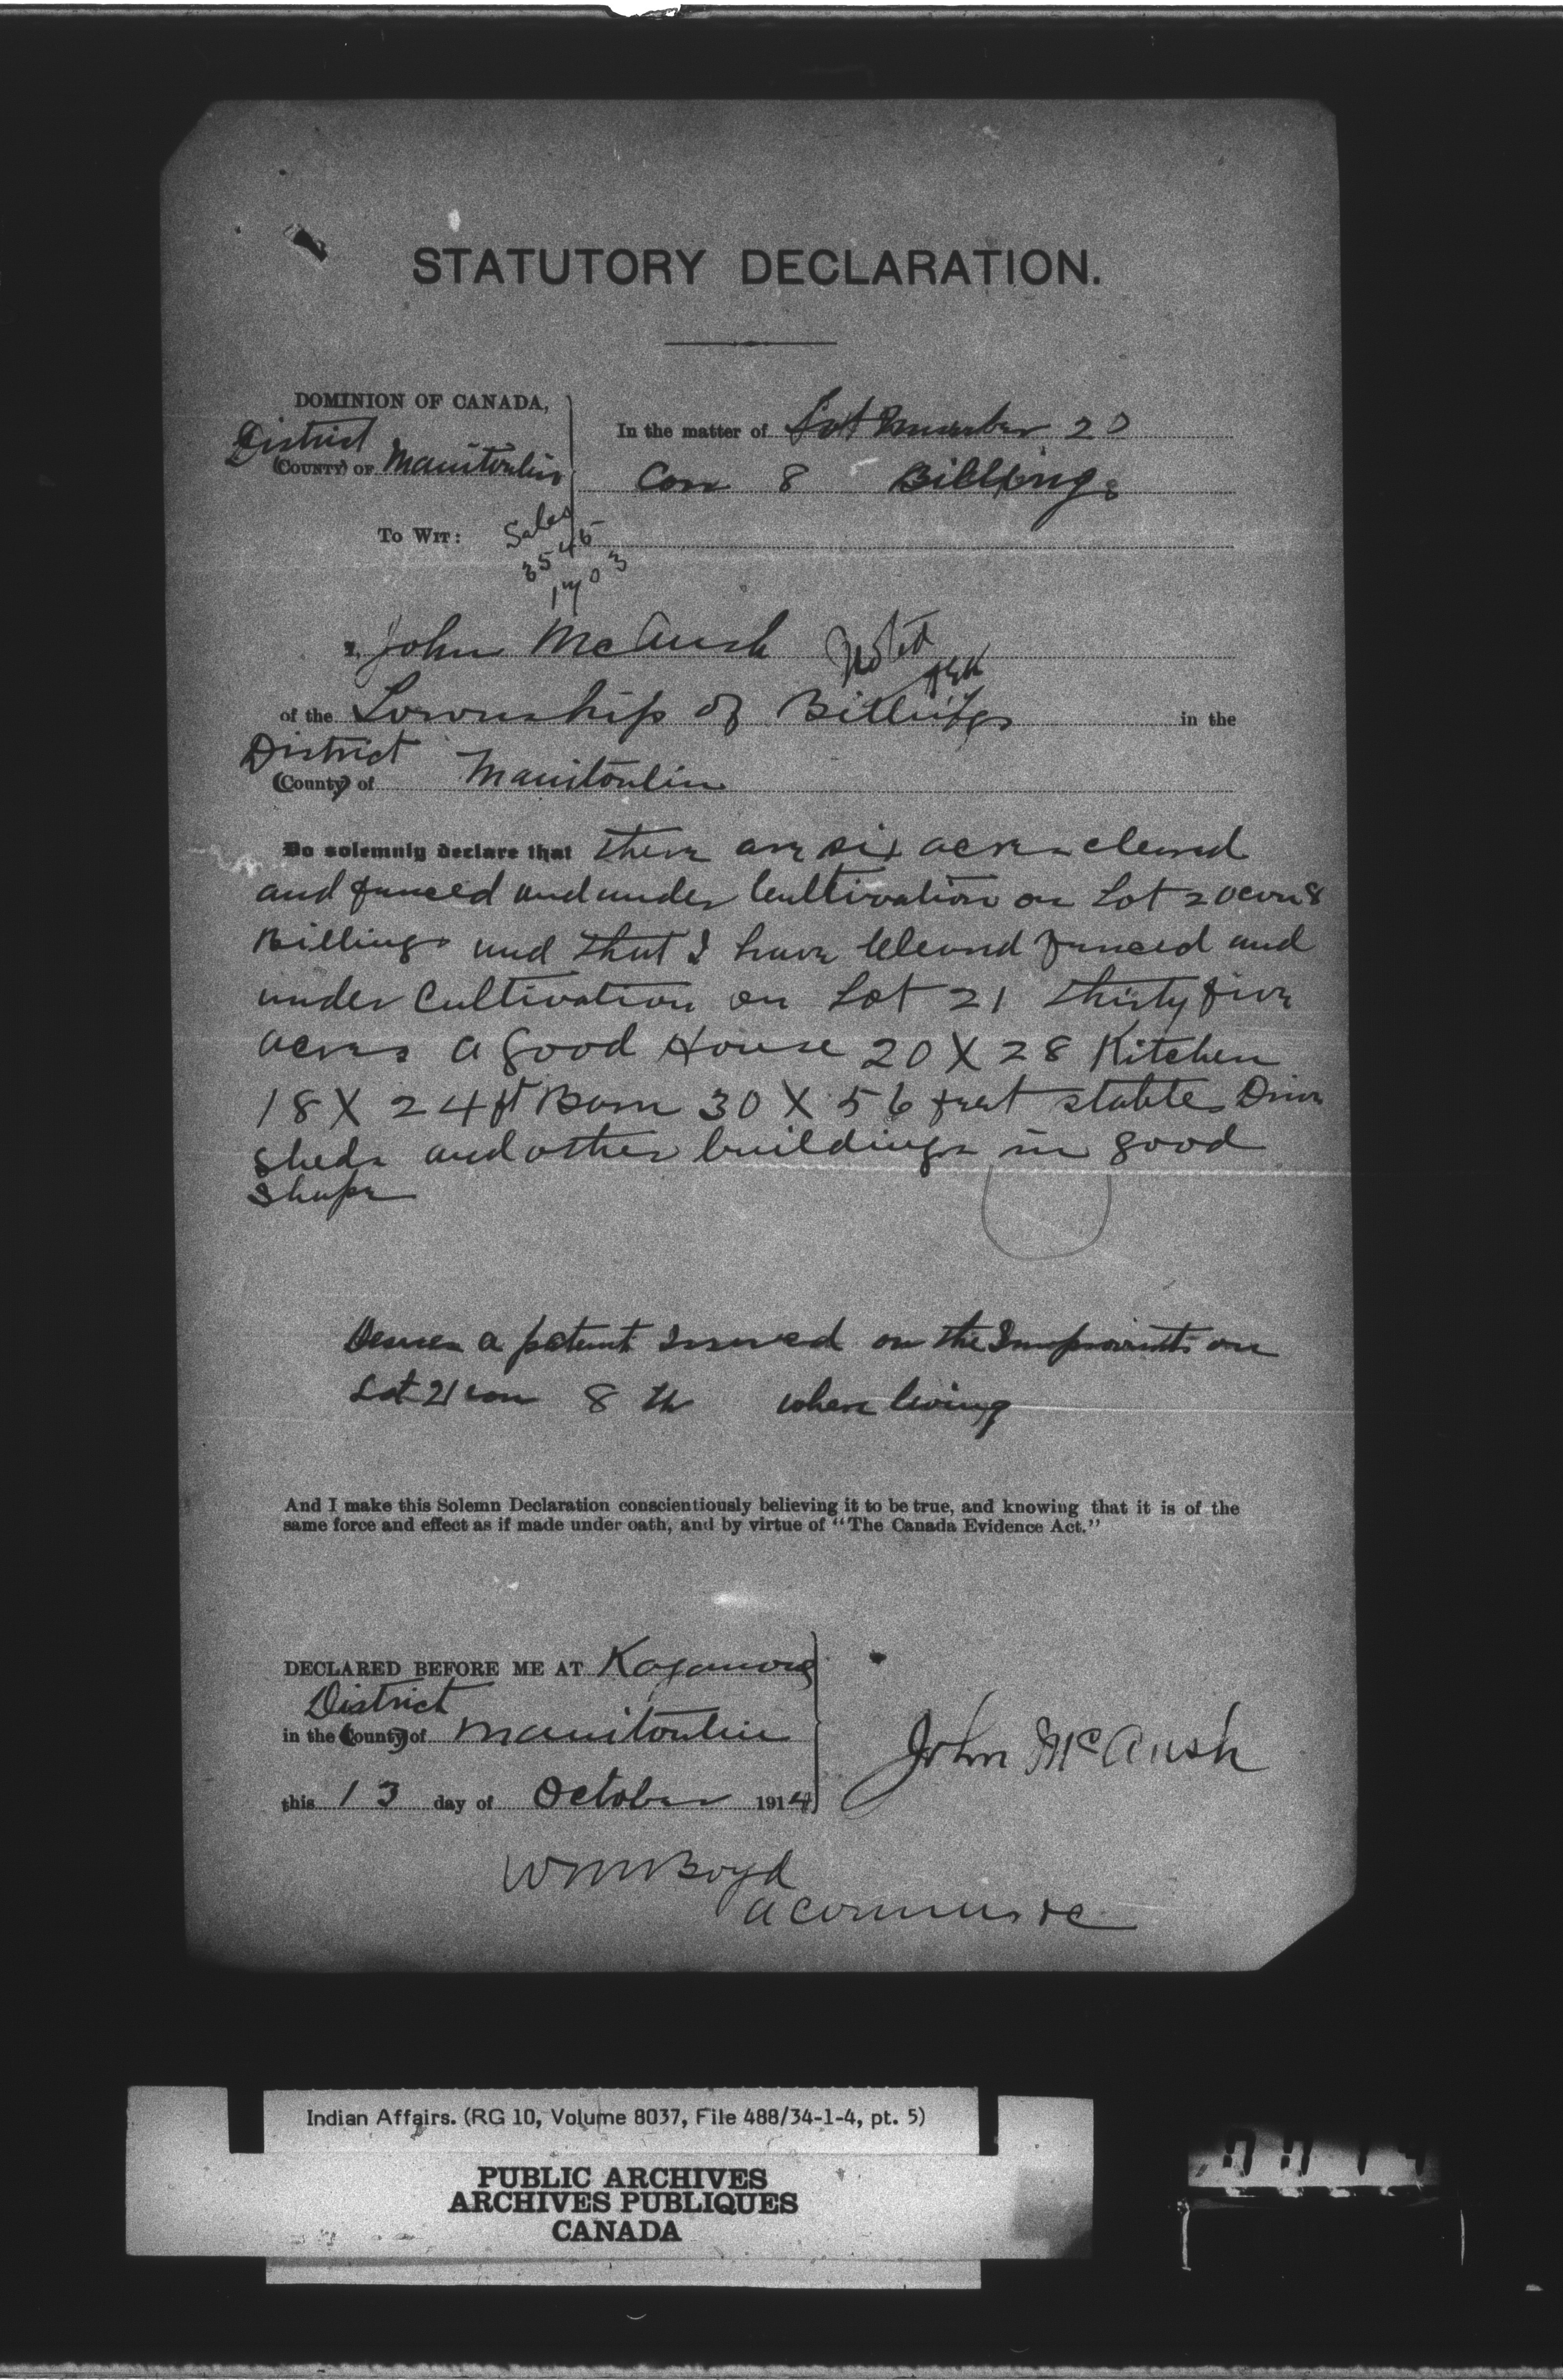 STATUTORY DECLARATION.
DOMINION OF CANADA,
District
(COUNTY) OF Manitoulin
To Wit:
In the matter of Lot Number 20
Con 8 Billings
Sales
3546
1703
I, John McAush
Noted
of the Township of Billings in the
District
(County) of Manitoulin
Do solemnly declare that there are six acres cleared
and fenced and under Cultivation on Lot 20 con 8
Billings and that I have Cleared fenced and
under Cultivation on Lot 21 thirty five
acres a good House 20 X 28 Kitchen
18 X 24 ft Barn 30 X 56 feet stables Drive
Sheds and other buildings in good
Shape
Desires a patent Issued on the Improvmts on
Lot 21 con 8 th where living
And I make this Solemn Declaration conscientiously believing it to be true, and knowing that it is of the
same force and effect as if made under oath, and by virtue of "The Canada Evidence Act."
DECLARED BEFORE ME AT Kagawong
District
in the (County) of Manitoulin
this 13 day of October 1914
John McAush
Wm Boyd
a Commiss &c
Indian Affairs. (RG 10, Volume 8037, File 488/34-1-4, pt. 5)
PUBLIC ARCHIVES
ARCHIVES PUBLIQUES
CANADA